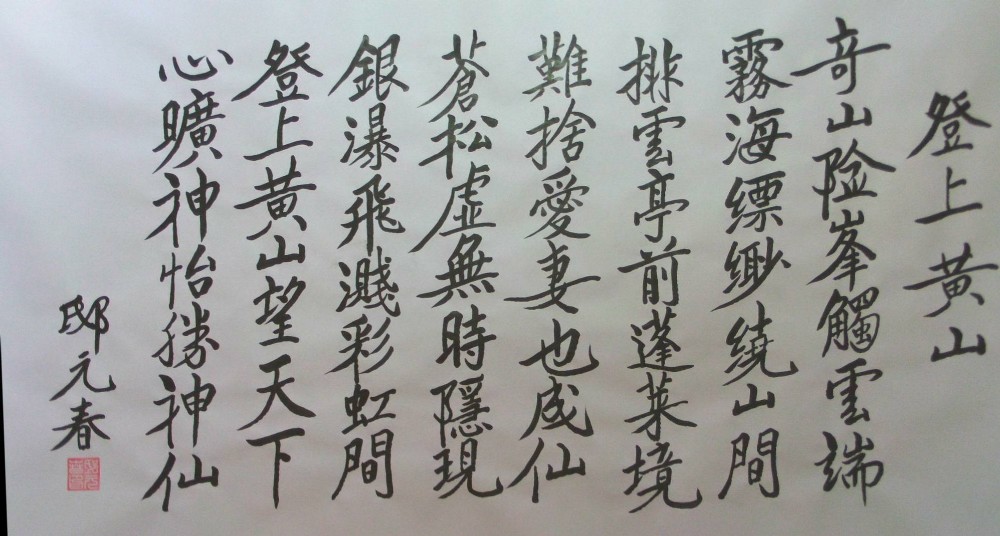 登上黃山
奇山险峯觸雲端
霧海缥缈繞山間
排雲亭前蓬莱境
難捨愛妻也成仙
蒼松虛無時隱現
銀瀑飛濺彩虹間
登上黃山望天下
心曠神怡勝神仙
邸元春